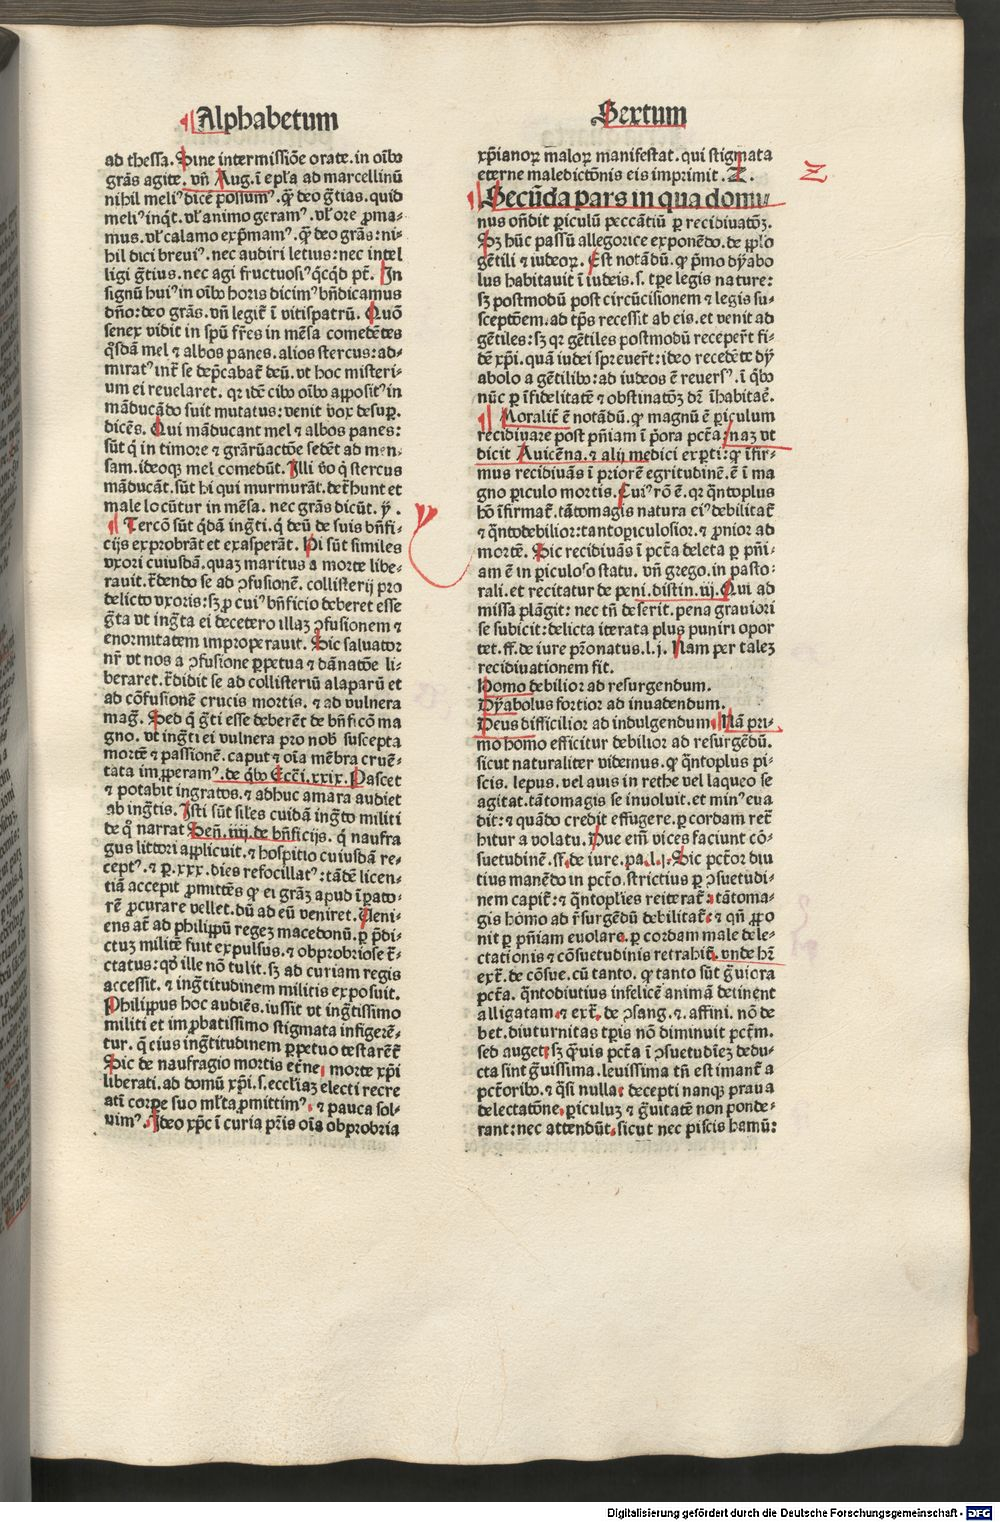 Alphabetum
ad thessa. Sine intermissiõe orate. in oĩbꝰ
grãs agite. vñ Aug. ĩ epl'a ad marcellinũ
nihil meliꝰ dicẽ possumꝰ. ꝙ̃ deo g̃tias. quid
meliꝰ inq̃t. vl' animo geramꝰ. vl' ore ꝓma⸗
mus. vl' calamo exp̃mamꝰ. ꝙ̃ deo grãs: ni⸗
hil dici breuiꝰ. nec audiri letius: nec intel
ligi g̃tius. nec agi fructuosiꝰ q̃cq̃d pt̃. In
signũ huiꝰ in oĩbꝰ horis dicimꝰ bñdicamus
dño: deo grãs. vñ legit̃ ĩ vitispatrũ. Quõ
senex vidit in spũ fr̃es in mẽsa comedẽtes
q̃sdã mel ⁊ albos panes. alios stercus: ad⸗
miratꝰ int̃ se dep̃cabat̃ deũ. vt hoc misteri⸗
um ei reuelaret. qꝛ idẽ cibꝰ oĩbꝰ appositꝰ in
mãducãdo fuit mutatus: venit vox desuꝑ.
dicẽs. Qui mãducant mel ⁊ albos panes:
sũt q̃ in timore ⁊ grãrũactõe sedẽt ad men⸗
sam. ideoqꝫ mel comedũt. Illi ꝟo q̃ stercus
mãducãt. sũt hi qui murmurãt. det̃hunt et
male locũtur in mẽsa. nec grãs dicũt. y .
¶ Tercõ sũt q̃dã ing̃ti. q̃ deũ de suis bñfi⸗
cijs exprobrãt et exasperãt. Hi sũt similes
vxori cuiusdã. quaꝫ maritus a morte libe⸗
rauit. t̃dendo se ad ꝯfusionẽ. collisterij pro
delicto vxoris: sꝫ ꝓ cuiꝰ bñficio deberet esse
g̃ta vt ing̃ta ei decetero illaꝫ ꝯfusionem ⁊
enormitatem improperauit. Sic saluator
nr̃ vt nos a ꝯfusione ꝑpetua ⁊ dãnatõe li⸗
beraret. t̃didit se ad collisteriũ alaparũ et
ad cõfusionẽ crucis mortis. ⁊ ad vulnera
mag̃. Sed q̃ g̃ti esse deberẽt de bñficõ ma
gno. vt ing̃ti ei vulnera pro nob̃ suscepta
mortẽ ⁊ passionẽ. caput ⁊ oĩa mẽbra cruẽ⸗
tata imꝓperamꝰ. de q̃bꝰ Ecci̇. xxix. Pascet
⁊ potabit ingratos. ⁊ adhuc amara audiet
ab ing̃tis. Isti sũt siles cuidã ing̃to militi
de q̃ narrat Señ. iiij. de bñficijs. q̃ naufra
gus littori applicuit. ⁊ hospitio cuiusdã re⸗
ceptꝰ. ⁊ ꝑ. xxx. dies refocillatꝰ: tãdẽ licen⸗
tiã accepit ꝓmittẽs ꝙ ei grãꝫ apud ĩꝑato⸗
rẽ ꝓcurare vellet. dũ ad eũ veniret. Veni⸗
ens at̃ ad philippũ regeꝫ macedonũ. ꝑ p̃di⸗
ctuꝫ militẽ fuit expulsus. ⁊ obprobriose t̃⸗
ctatus: qd̃ ille nõ tulit. sꝫ ad curiam regis
accessit. ⁊ ing̃titudinem militis exposuit.
Philippus hoc audiẽs. iussit vt ing̃tissimo
militi et improbatissimo stigmata infigerẽ⸗
tur. q̃ eius ing̃titudinem ꝑpetuo testarẽt̃
Sic de naufragio mortis et̃ne. morte xp̃i
liberati. ad domũ xp̃i. s. eccl'iaꝫ electi recre
ati̇ corpe suo ml'ta ꝓmittimꝰ. ⁊ pauca sol⸗
uimꝰ. Ideo xp̃c ĩ curia pr̃is oĩa obprobria
y
Sextum
xp̃ianoꝝ maloꝝ manifestat. qui stigmata
eterne maledictõnis eis imprimit. Z .
Z
¶ Secũda pars in qua domi⸗
nus oñdit ꝑiculũ peccãtiũ ꝑ recidiuatõꝫ.
Sꝫ hũc passũ allegorice exponẽdo. de pplo
gẽtili ⁊ iudeoꝝ. Est notãdũ. ꝙ p̃mo dẏabo
lus habitauit ĩ iudeis. s. tꝑe legis nature:
sꝫ postmodũ post circũcisionem ⁊ legis su⸗
sceptõem. ad tp̃s recessit ab eis. et venit ad
gẽtiles: sꝫ qꝛ gẽtiles postmodũ receper̃t fi⸗
dẽ xp̃i. quã iudei spreuer̃t: ideo recedẽte dẏ
abolo a gẽtilibꝰ: ad iudeos ẽ reuersꝰ. ĩ q̃bꝰ
nũc ꝑ ĩfidelitatẽ ⁊ obstinatõꝫ dr̃ ĩhabitaẽ.
¶ Moralit̃ ẽ notãdũ. ꝙ magnũ ẽ ꝑiculum
recidiuare post pñiam ĩ p̃ora pctã: naꝫ vt
dicit Auicẽna. ⁊ alij medici exꝑti: ꝙ ĩfir⸗
mus recidiuãs ĩ priorẽ egritudinẽ. ẽ ĩ ma
gno ꝑiculo mortis. Cuiꝰ rõ ẽ. qꝛ q̃ntoplus
hõ ĩfirmat̃. tãtomagis natura eiꝰ debilitat̃
⁊ q̃ntodebilior: tantoꝑiculosior. ⁊ ꝓnior ad
mortẽ. Sic recidiuãs ĩ pctã deleta ꝑ pñi⸗
am ẽ in ꝑiculoso statu. vñ grego. in pasto⸗
rali. et recitatur de peni. distin. iij. Qui ad
missa plãgit: nec tñ deserit. pena grauiori
se subicit: delicta iterata plus puniri opor
tet. ff. de iure pr̃onatus. l. j. Nam per taleꝫ
recidiuationem fit.
Homo debilior ad resurgendum.
Dẏabolus fortior ad inuadendum.
Deus difficilior ad indulgendum ¶ Nã pri⸗
mo homo efficitur debilior ad resurgẽdũ.
sicut naturaliter videmus. ꝙ q̃ntoplus pi⸗
scis. lepus. vel auis in rethe vel laqueo se
agitat. tãtomagis se inuoluit. et minꝰ eua
dit: ⁊ quãdo credit effugere. ꝑ cordam ret̃
hitur a volatu. Due em̃ vices faciunt cõ⸗
suetudinẽ. ff. de iure. pa. l. j. Sic pctõr diu
tius manẽdo in pctõ. strictius ꝑ ꝯsuetudi⸗
nem capit̃: ⁊ q̃ntopl'ies reiterat̃: tãtoma⸗
gis homo ad r̃surgẽdũ debilitat̃: ⁊ qñ ꝓpo
nit ꝑ pñiam euolare. ꝑ cordam male dele⸗
ctationis ⁊ cõsuetudinis retrahit̃. vnde hr̃
ext̃. de cõsue. cũ tanto. ꝙ tanto sũt g̃uiora
pctã. q̃ntodiutius infelicẽ animã detinent
alligatam. ⁊ ext̃. de ꝯsang. ⁊. affini. nõ de
bet. diuturnitas tꝑis nõ diminuit pctm̃.
sed auget: sꝫ q̃uis pctã ĩ ꝯsuetudĩeꝫ dedu⸗
cta sint g̃uissima. leuissima tñ est imant̃ a
pctõribꝰ. ⁊ q̃si nulla: decepti nanqꝫ praua
delectatõne. ꝑiculuꝫ ⁊ g̃uitatẽ non ponde⸗
rant: nec attendũt. sicut nec piscis hamũ:
Digitalisierung gefördert durch die Deutsche Forschungsgemeinschaft - DFG